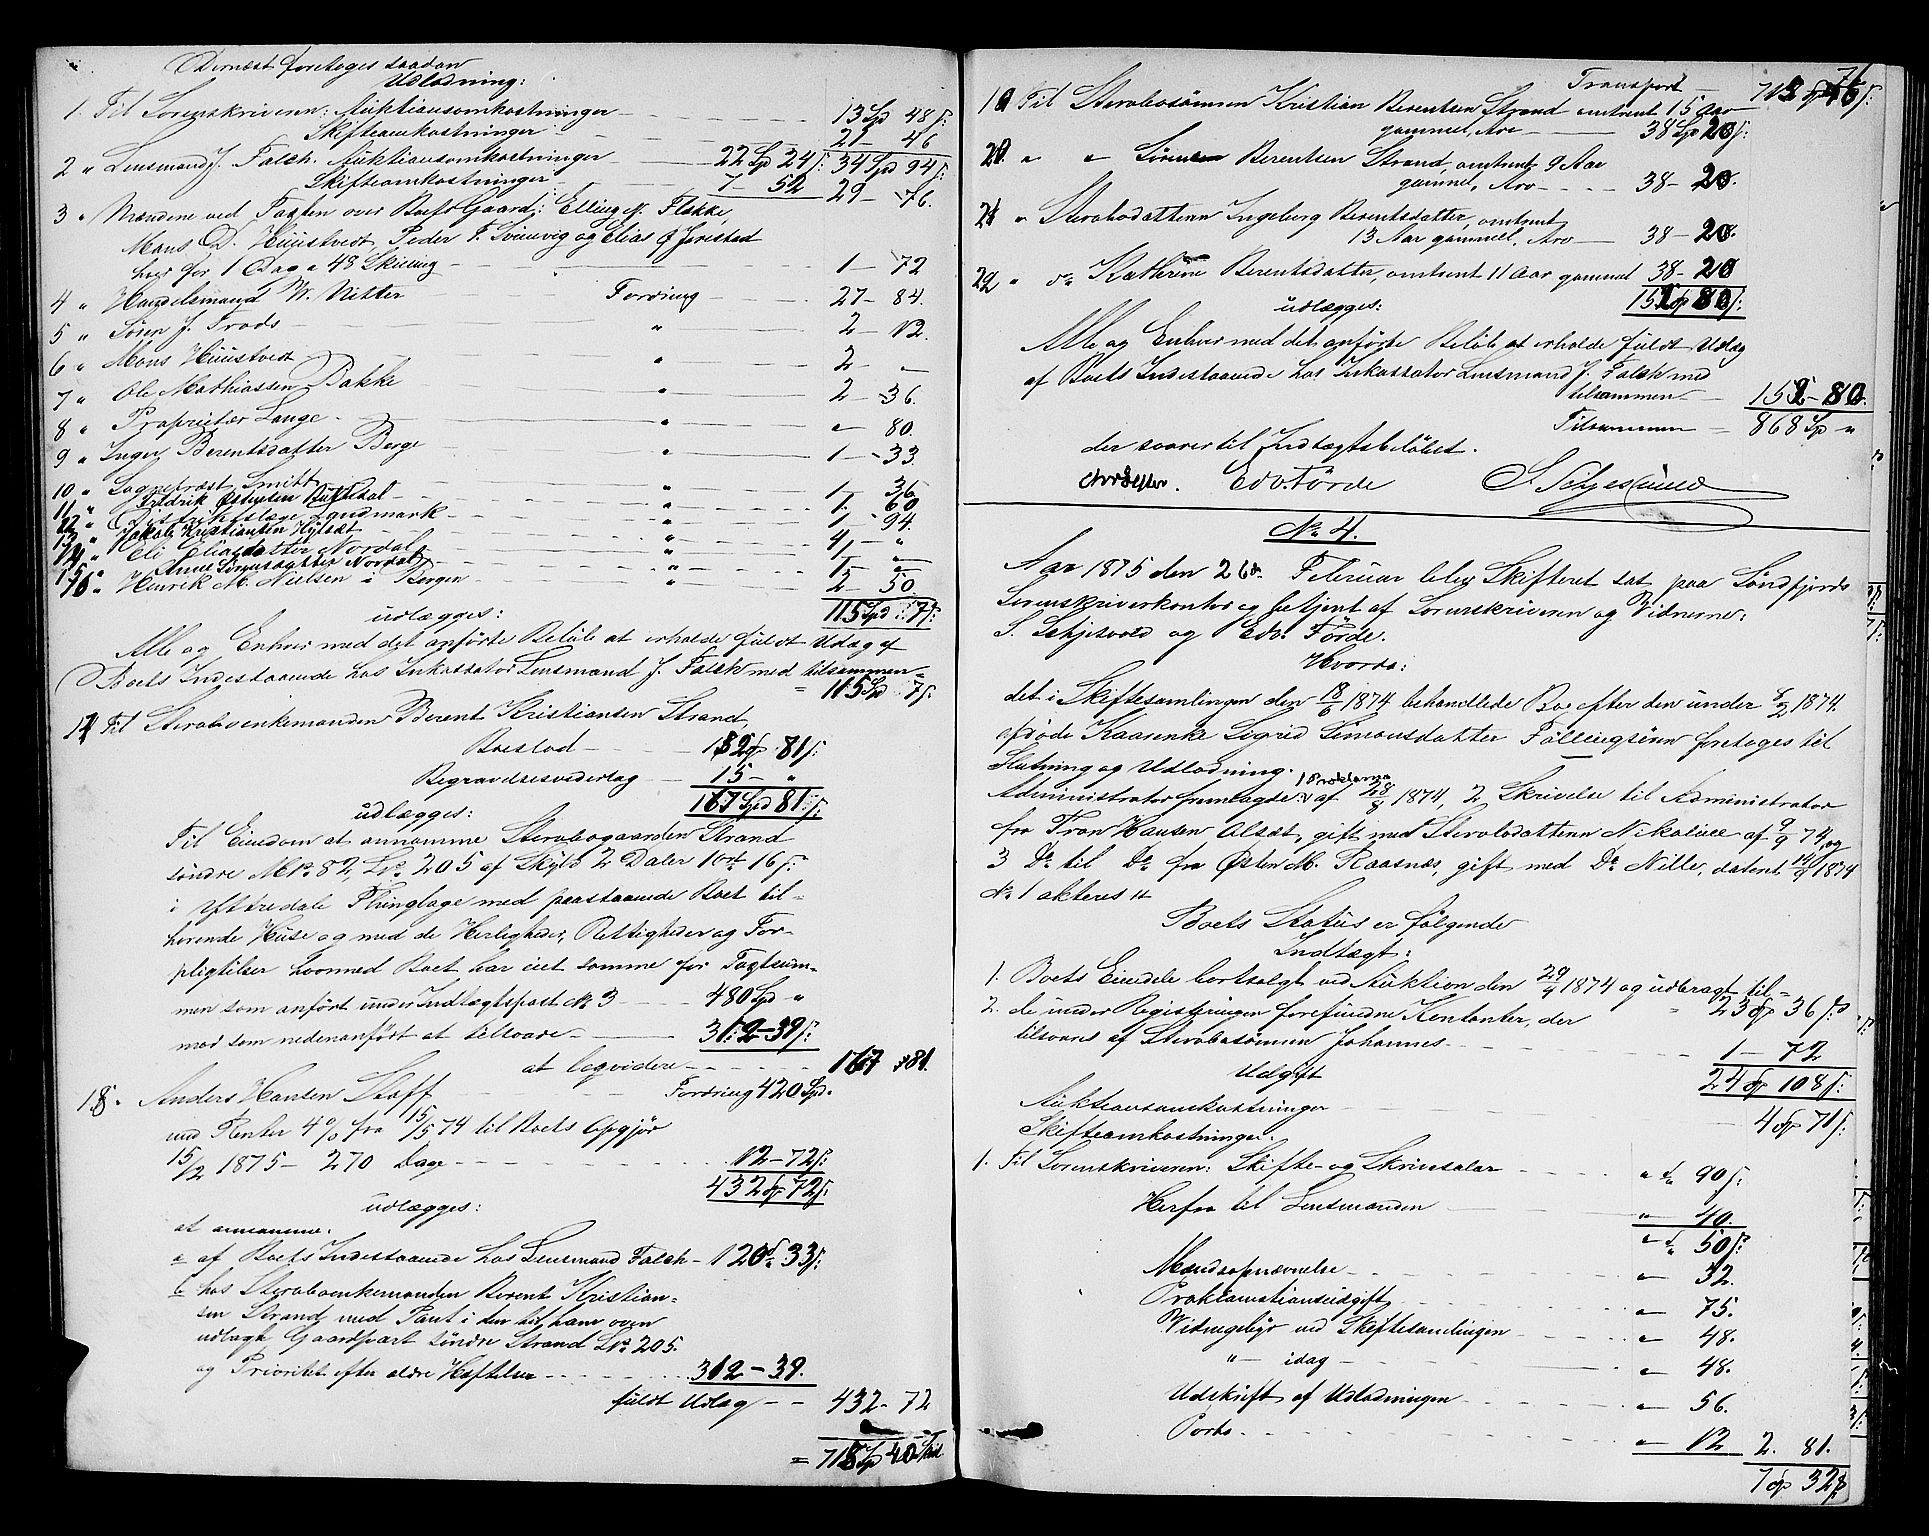 Dernæst foretoges saadan
Udlodning:
1. Til Sorenskriveren: Auktionsomkostninger 13 Spd 48 s:
Skifteomkostninger 21 - 46
34 Spd 94 s:
2 " Lensmand J. Falch. Auktionsomkostninger 22 Spd 24 s:
Skifteomkostninger 7 - 52 29 - 76.
3 " Mændene ved Taxten over Boets Gaard: Elling N. Flokke,
Mons D. Hüüstvedt, Peder F. Svinevig og Elias Ø Jorestad
hver for 1 Dag a 48 Skilling 1 - 72
4 " Handelsmand W. Ditter Fordring 27 - 84.
5 " Søren J. Frods " 2 - 12.
6 " Mons Hüüstvedt " 2 - "
7 " Ole Mathiassen Bakke " 2 - 36.
8 " Proprietær Lange " " 80.
9 " Inger Berentsdatter Berge " 1 - 33
10 " Sogneprest Smitt " 1 - 36
11 " Fredrik Østensen " 1. 60
12 " Landmark " 1 - 94.
13 " Jakob Kristiansen " 4 - "
14 " Eli Eliasdatter Nordal "
15 " Anne Simonsdatter Nordal " 1 - "
16 " Henrik M. Nielsen i Bergen " 2 - 50.
udlægges: 115 Spd 7 s:
Alle og Enhver med det anførte Beløb at erholde fuldt Udlæg af
Boets Indestaaende hos Inkassator Lensmand J. Falch med tilsammen
= 115 Spd 7 s:
17 Til Stervboenkemanden Berent Kristiansen Strand,
Boeslod 152 Sp 81 s:
Begravelsesvederlag 15 - "
167 Spd 81 s:
udlægges:
Til Eiendom at annamme Stervbogaarden Strand
søndre Mno. 82, Lno. 205 af Skyld 2 Daler 1 ort 16 s:
i Yttredals Thinglage med paastaaende Boet til-
hørende Huse og med de Herligheder, Rettigheder og For-
pligtelser hvormed Boet har eiet samme for Taxtsum-
men som anført under Indtægtspost No 3 480 Spd "
mod som nedenanført at tilsvare 312 - 39 s:
at liqvidere 167 " 81.
18. Anders Hansen Stoff Fordring 420 Spd.
med Renter 4% fra 15/5 74 til Boets Opgjør
15/2 1875 - 270 Dage 12 - 72 s:
432 Sp 72 s:
udlægges:
at annamme:
a af Boets Indestaaende hos Lensmand Falch - 120 " 33 s:
b hos Stervboenkemanden Berent Kristian-
sen Strand med Pant i den til ham oven
udlagte Gaardpart søndre Strand Lno 205.
og Prioritet efter ældre Hæftelser 312 - 39.
fuldt Udlæg 432 - 72
= 715 Sp 40 Skil
Transport 715 Sp 40 s:
19 Til Stervbosønnen Kristian Berentsen Strand omtrent 15 Aar
gammel, Arv 38 Sp 20 s:
20 " " Berentsen Strand, omtrent 9 Aar
gammel, Arv 38 - 20.
21 " Stervbodatteren Ingeborg Berentsdatter, omtrent
13 Aar gammel, Arv 38 - 20.
22 " do Kathrine Berentsdatter, omtrent 11 Aar gammel 38 - 20
udlægges: 152 Sp 80 s:
Alle og Enhver med det anførte Beløb at erholde fuldt Udlæg
af Boets Indestaaende hos Inkassator Lensmand J. Falch med
tilsammen 152 - 80.
Tilsammen 868 Sp "
der svarer til Indtægtsbeløbet.
Edv. Förde
No 4.
Aar 1875 den 26de Februar blev Skifteret sat paa Söndfjords
Sorenskriverkontor og betjent af Sorenskriveren og Vidnerne:
S. Schjesvold og Edv. Förde.
Hvorda:
det i Skiftesamlingen den 18/6 1874 behandlede Bo efter den under 2/2 1874.
afdøde Kaarenke Sigrid Simonsdatter Føllingsønn foretoges til
Slutning og Udlodning.
Administrator fremlagde: 1 Proklama af 28/8 1874, 2 Skrivelse til Administrator
fra Tron Hansen Alsæt, gift med Stervbodatteren Nikoline af 9/9 74, og
3 Do til Do fra Østen M. Raasnæs, gift med Do Nille, dateret 1874
No 1 akteres
Boets Status er følgende
Indtægt:
1. Boets Eiendele bortsolgt ved Auktion den 29/9 1874 og udbragt til
23 Sp 36 s:
2. de under Registreringen forefundne Kontanter, der
tilsvares af Stervbosønnen Johannes 1 - 72
24 Sp 108 s:
Udgift
Auktionsomkostninger 4 Sp 71 s:
Skifteomkostninger:
1. Til Sorenskriveren: Skifte- og Skriversalær " " 90 s:
Herfra til Lensmanden " 40.
" " 50 s:
Mændsopnævnelse " 32.
Proklamationsudgift " 75.
Vidnegebyr ved Skiftesamlingen " 48.
" - idag " 48.
Udskrift af Udlodningen " 56.
Porto " 12 2. 81.
7 Sp 32 s: